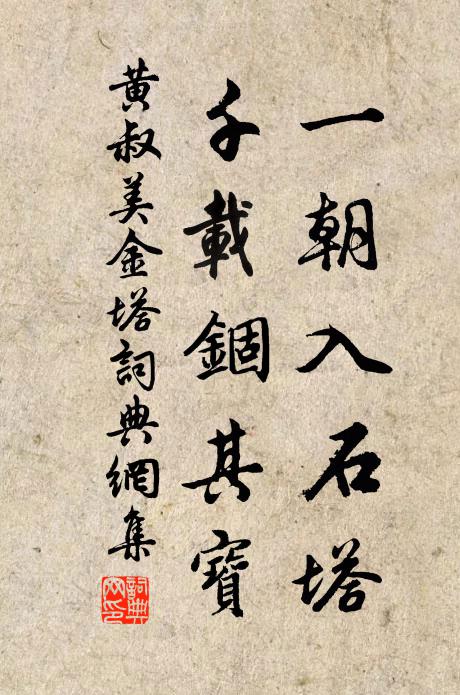 一朝入石塔
千載錮其寶
黄叔美金塔詞典網集
詞典網印